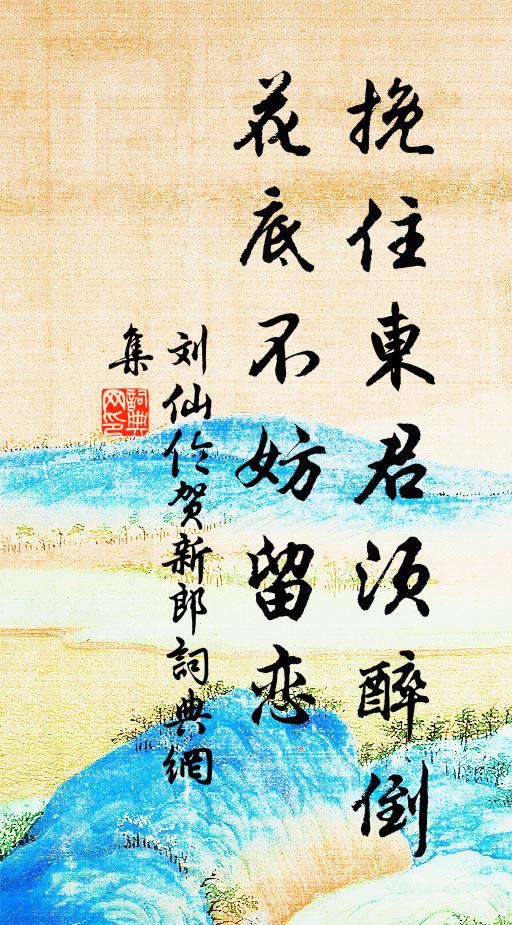 挽住東君須醉倒
花底不妨留恋
刘仙伦贺新郎詞典網
集
詞典網印